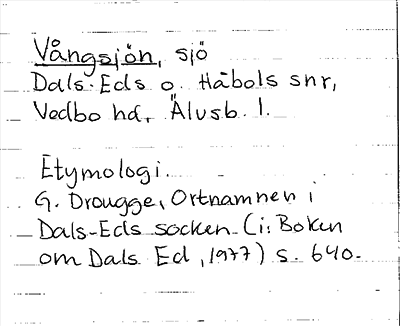 Vångsjön, sjö
Dals-Eds o. Håbols snr,
Vedbo hd, Älvsb. l.
Etymologi.
G. Drougge, Ortnamnen i
Dals-Eds socken (i: Boken
om Dals Ed, 1977) s. 640.